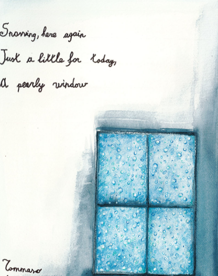 Snowing, here again
Just a little for today,
A pearly window
Tommaso